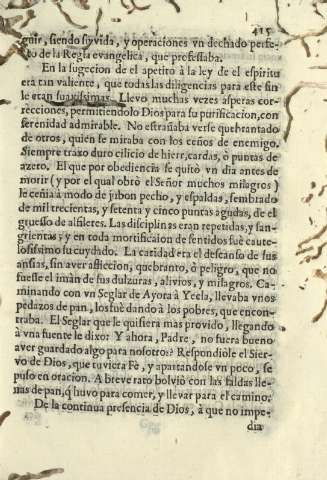 415
guir, siendo su vida, y operaciones vn dechado perfe-
to de la Regla evangelica, que professaba.
En la sugecion de el apetito à la ley de el espiritu
era tan valiente, que todas las diligencias para este fin
le eran suavissimas. Llevo muchas vezes asperas cor-
recciones, permitiendolo Dios para su purificacion, con
serenidad admirable. No estrañaba verse quebrantado
de otros, quien se miraba con los ceños de enemigo.
Siempre traxo duro cilicio de hierr, cardas, ò puntas de
azero. El que por obediencia se quitò vn dia antes de
morir (y por el qual obrò el Señor muchos milagros)
le ceñia à modo de jubon pecho, y espaldas, sembrado
de mil trecientas, y setenta y cinco puntas agudas, de el
gruesso de alfileres. Las disciplinas eran repetidas, y san-
grientas; y en toda mortificaion de sentidos fuè caute-
losissimo su cuydado. La caridad era el descanso de sus
ansias, sin aver afliccion, quebranto, ò peligro, que no
fuesse el imàn de sus dulzuras, alivios, y milagros. Ca-
minando con vn Seglar de Ayora à Yecla, llevaba vnos
pedazos de pan, los fuè dando à los pobres, que encon-
traba. El Seglar que le quisiera mas provido, llegando
à vna fuente le dixo: Y ahora, Padre, no fuera bueno
aver guardado algo para nosotros? Respondiòle el Sier-
vo de Dios, que tuviera Fè, y apartandose vn poco, se
puso en oracion. A breve rato bolviò con las faldas lle-
nas de pan, q̃ huvo para comer, y llevar para el camino.
De la continua presencia de Dios, à que no impe-
dia